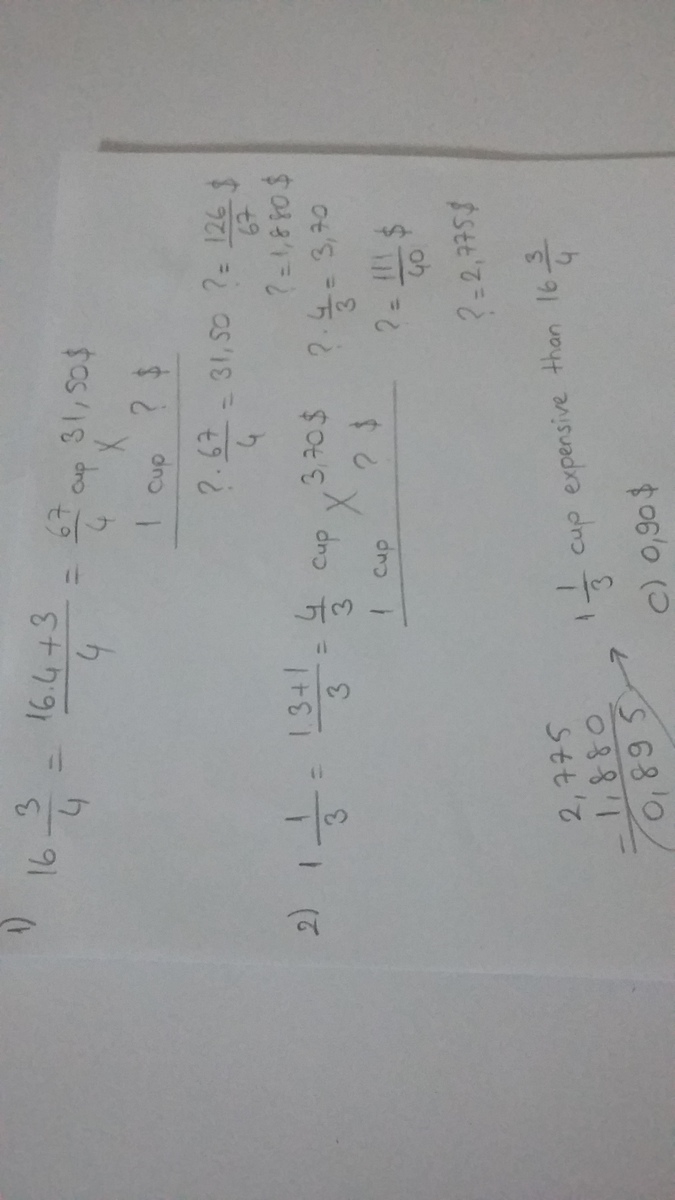 1)
16 3/4 = 16.4+3/4 = 67/4 cup 31,50$
X
1 cup ? $
? . 67/4 = 31,50 ? = 126/67 $
? = 1,880 $
2) 1 1/3 = 1.3+1/3 = 4/3 cup 3,70$
X
1 cup ? $
? . 4/3 = 3,70
? = 111/40 $
? = 2,775$
2,775
1,880
= 0,895
1 1/3 cup expensive than 16 3/4
C) 0,90$